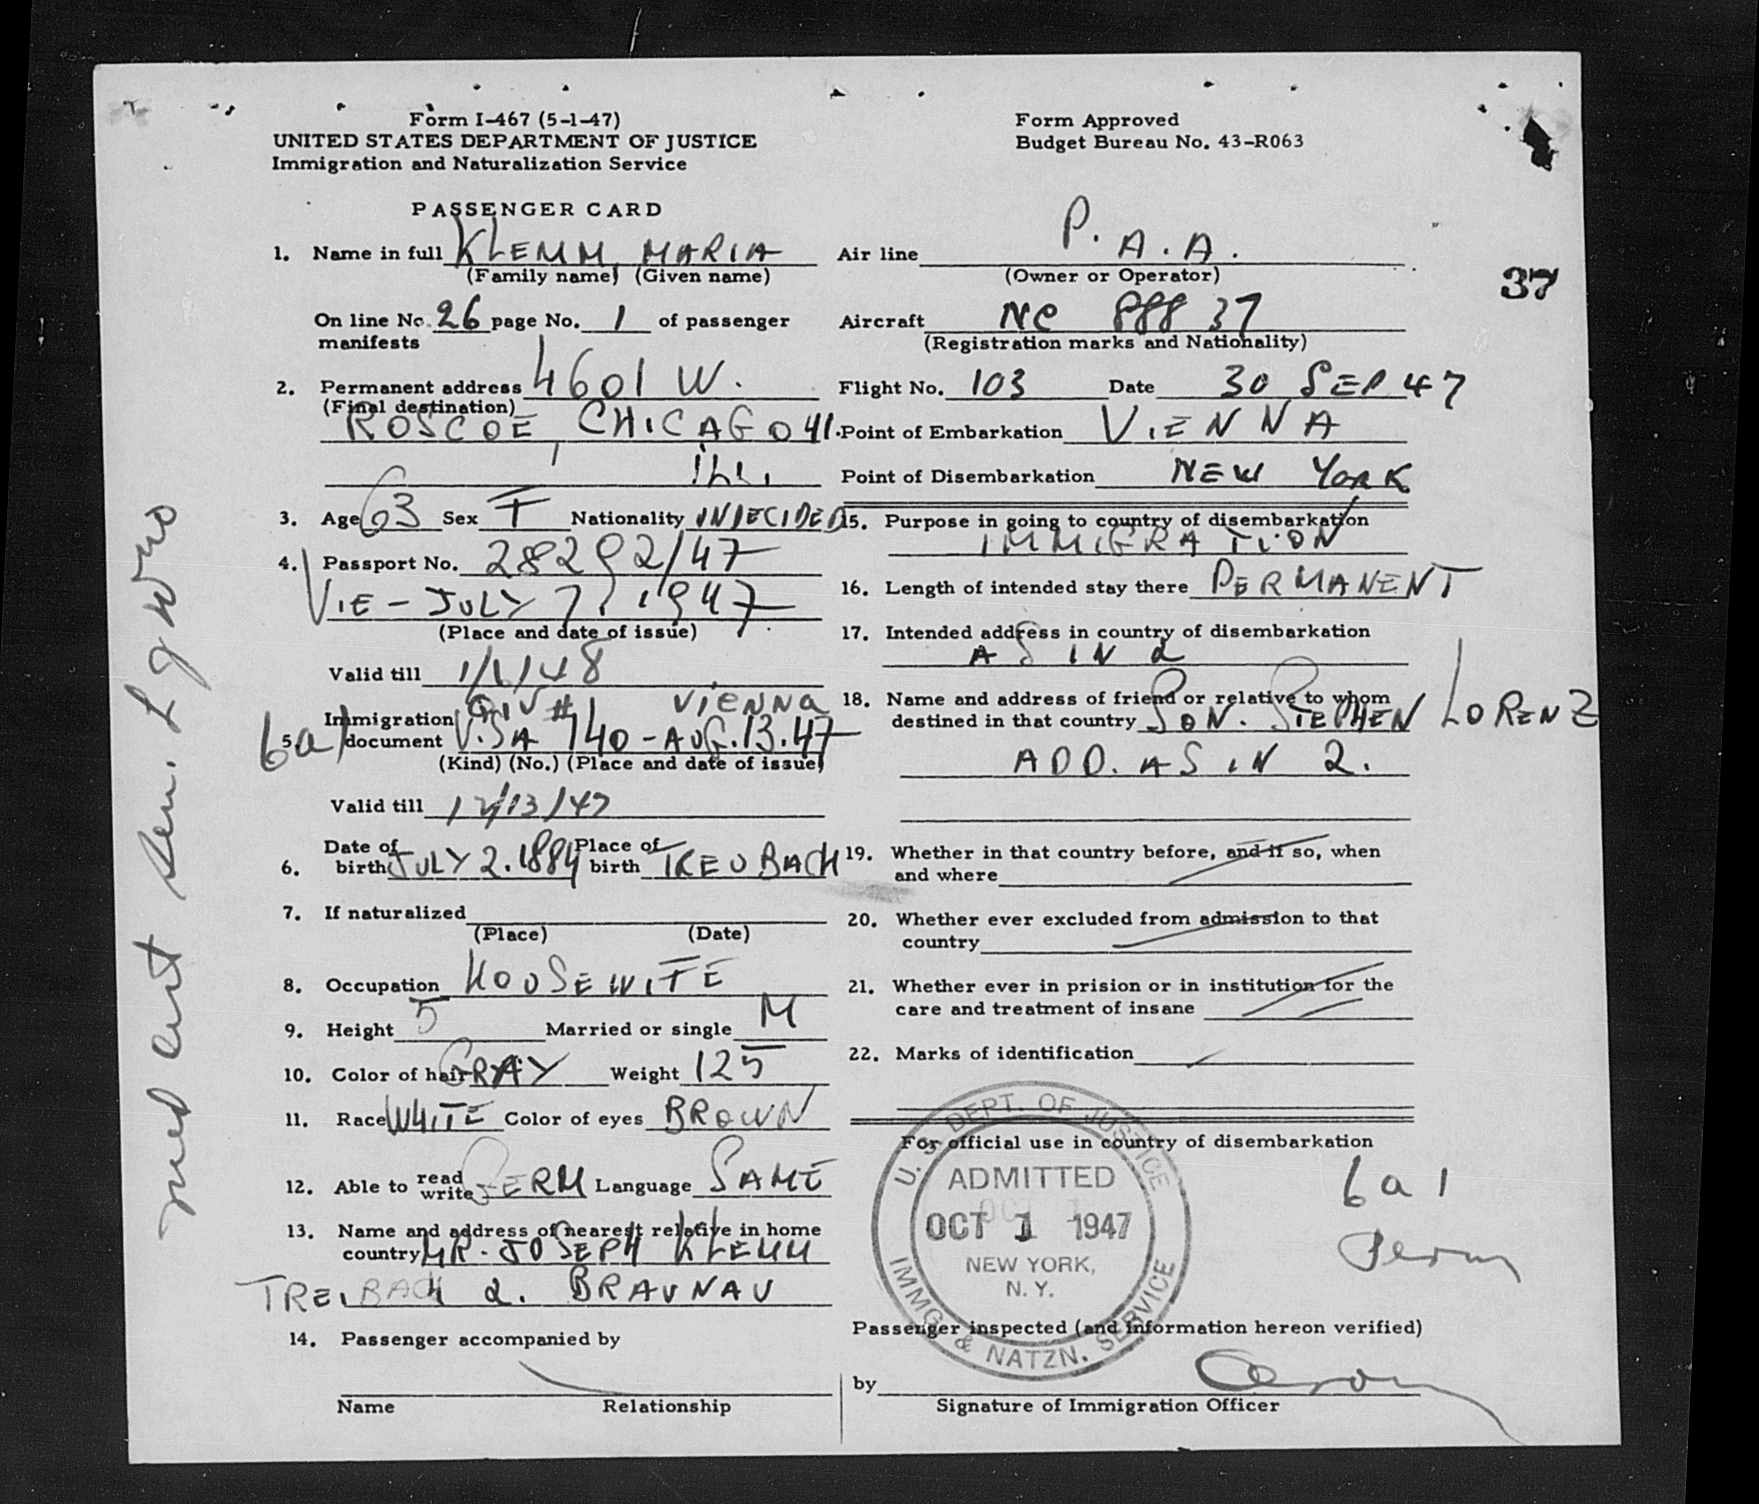 Form I-467 (5-1-47)
UNITED STATES DEPARTMENT OF JUSTICE
Immigration and Naturalization Service
Form Approved
Budget Bureau No. 43-R063
PASSENGER CARD
1. Name in full KLEMM MARIA
(Family name) (Given name)
On line No. 26 page No. 1 of passenger
manifests
2. Permanent address 4601 W.
(Final destination)
ROSCOE, CHICAGO 41.
ILL.
3. Age 63 Sex F Nationality UNDECIDED
4. Passport No. 28292/47
VIE - JULY 7, 1947
(Place and date of issue)
Valid till 1/1/48
QIV # VIENNA
5. Immigration
document VISA 140 - AUG. 13. 47
6a1
(Kind) (No.) (Place and date of issue)
Valid till 12/13/47
6. Date of birth JULY 2. 1884 Place of birth TREUBACH
7. If naturalized
(Place) (Date)
8. Occupation HOUSEWIFE
9. Height 5 Married or single M
10. Color of hair GRAY Weight 125
11. Race WHITE Color of eyes BROWN
12. Able to read write GERM Language SAME
13. Name and address of nearest relative in home
country MR. JOSEPH KLEMM
TREIBACH a. BRAUNAU
14. Passenger accompanied by
Name Relationship
Air line P. A. A.
(Owner or Operator)
37
Aircraft NC 88837
(Registration marks and Nationality)
Flight No. 103 Date 30 SEP 47
Point of Embarkation VIENNA
Point of Disembarkation NEW YORK
15. Purpose in going to country of disembarkation
IMMIGRATION
16. Length of intended stay there PERMANENT
17. Intended address in country of disembarkation
AS IN 2
18. Name and address of friend or relative to whom
destined in that country SON. STEPHEN LORENZ
ADD. AS IN 2.
19. Whether in that country before, and if so, when
and where
20. Whether ever excluded from admission to that
country
21. Whether ever in prision or in institution for the
care and treatment of insane
22. Marks of identification
For official use in country of disembarkation
U. S. DEPT. OF JUSTICE
ADMITTED
OCT 1 1947
NEW YORK,
N. Y.
IMMG. & NATZN. SERVICE
6a1
Perm
Passenger inspected (and information hereon verified)
by
Signature of Immigration Officer
med cert Sen.